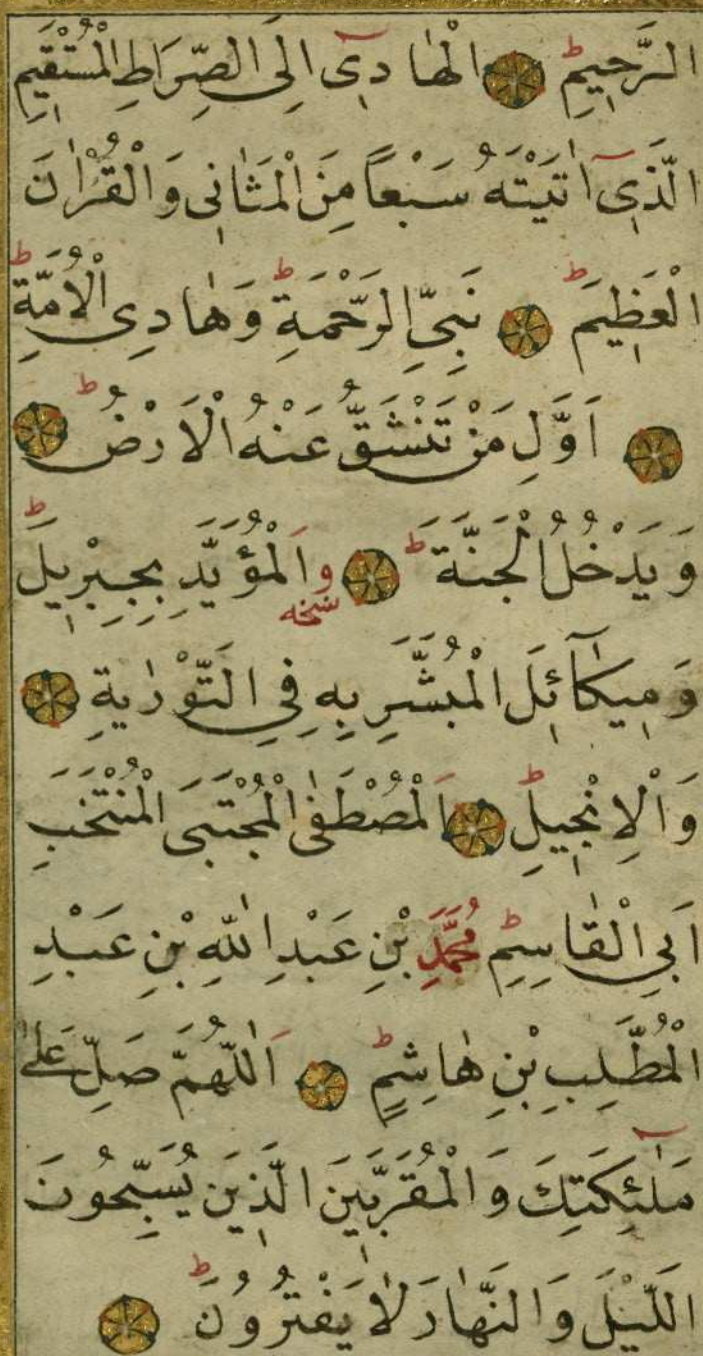 الرَّحِيمِ ط الْهَادِي إِلَى الصِّرَاطِ الْمُسْتَقِيمِ
الَّذِي اٰتَيْتَهُ سَبْعًا مِنَ الْمَثَانِي وَالْقُرْاٰنَ
الْعَظِيمَ ط نَبِيِّ الرَّحْمَةِ ط وَهَادِي الْاُمَّةِ ط
اَوَّلِ مَنْ تَنْشَقُّ عَنْهُ الْاَرْضُ ط
وَيَدْخُلُ الْجَنَّةَ ط وَالْمُؤَيَّدِ بِجِبْرِيلَ ط
نسخه
وَمِيكَآئِلَ الْمُبَشَّرِ بِهِ فِي التَّوْرٰيةِ
وَالْاِنْجِيلِ ط اَلْمُصْطَفٰى الْمُجْتَبَى الْمُنْتَخَبِ
اَبِي الْقَاسِمِ ط مُحَمَّدِ بْنِ عَبْدِ اللّٰهِ بْنِ عَبْدِ
الْمُطَّلِبِ بْنِ هَاشِمٍ ط اَللّٰهُمَّ صَلِّ عَلٰى
مَلٰٓئِكَتِكَ وَالْمُقَرَّبِينَ الَّذِينَ يُسَبِّحُونَ
اللَّيْلَ وَالنَّهَارَ لَا يَفْتُرُونَ ط